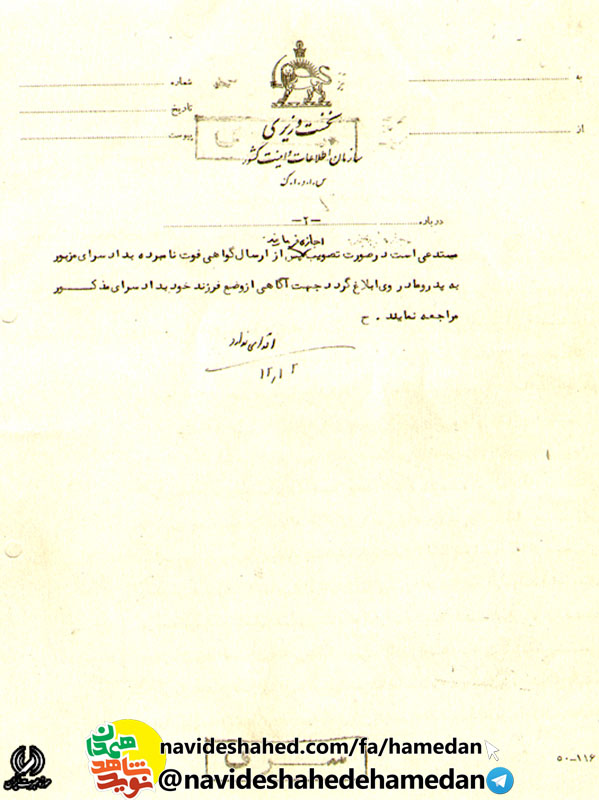 به
شماره
تاریخ
از
پیوست
نخست وزیری
سازمان اطلاعات و امنیت کشور
س.ا.و.ا.ک
درباره
-۲-
اجازه فرمایند
مستدعی است درصورت تصویب پس از ارسال گواهی فوت نامبرده بدادسرای مزبور
به پدر و مادر وی ابلاغ گردد جهت آگاهی از وضع فرزند خود بدادسرای مذکور
مراجعه نمایند . ح
اقدامی ندارد
۱۲/۳
سری
۵۰-۱۱۶
نوید شاهد همدان
navideshahed.com/fa/hamedan
@navideshahedehamedan